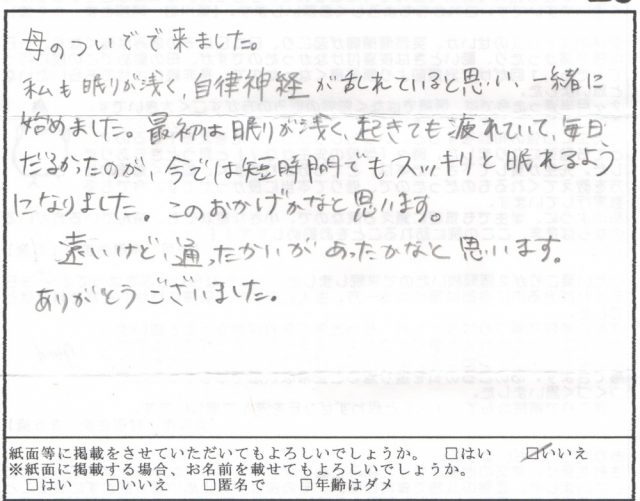 母のついでで来ました。
私も眠りが浅く、自律神経が乱れていると思い、一緒に
始めました。最初は眠りが浅く、起きても疲れていて、毎日
だるかったのが、今では短時間でもスッキリと眠れるよう
になりました。このおかげかなと思います。
遠いけど、通ったかいがあったかなと思います。
ありがとうございました。
紙面等に掲載をさせていただいてもよろしいでしょうか。 □はい ☑いいえ
※紙面に掲載する場合、お名前を載せてもよろしいでしょうか。
□はい □いいえ □匿名で □年齢はダメ